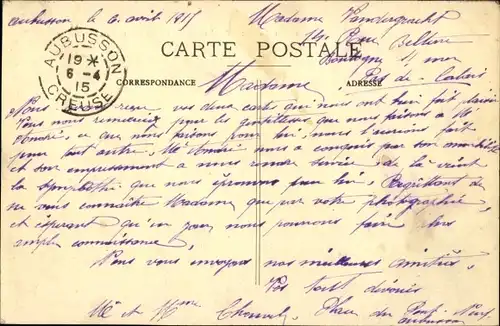 Aubusson le 6 avril 1915
Madame Vandergucht
Rue Belteu
Boulogne s/ mer
Pas de Calais
CARTE POSTALE
AUBUSSON
19 *
6 - 4
15
CREUSE
CORRESPONDANCE
ADRESSE
Madame
Nous vos deux cartes qui nous ont bien fait plaisir
Vous nous remerciez pour les gentillesses que nous faisons à Mr
André, ce que nous faisons pour lui, nous l'aurions fait
pour tout autre. Mr André nous a conquis par son
et son empressement à nous rendre service de là vient
la sympathie que nous éprouvons pour lui. Regrettant de
ne vous connaître Madame que par votre photographie,
et espérant qu'un jour nous pourrons faire plus
ample connaissance,
Nous vous envoyons nos meilleures amitiés,
Vos tout dévoués
Mr et Mme Place du Pont Neuf
Aubusson